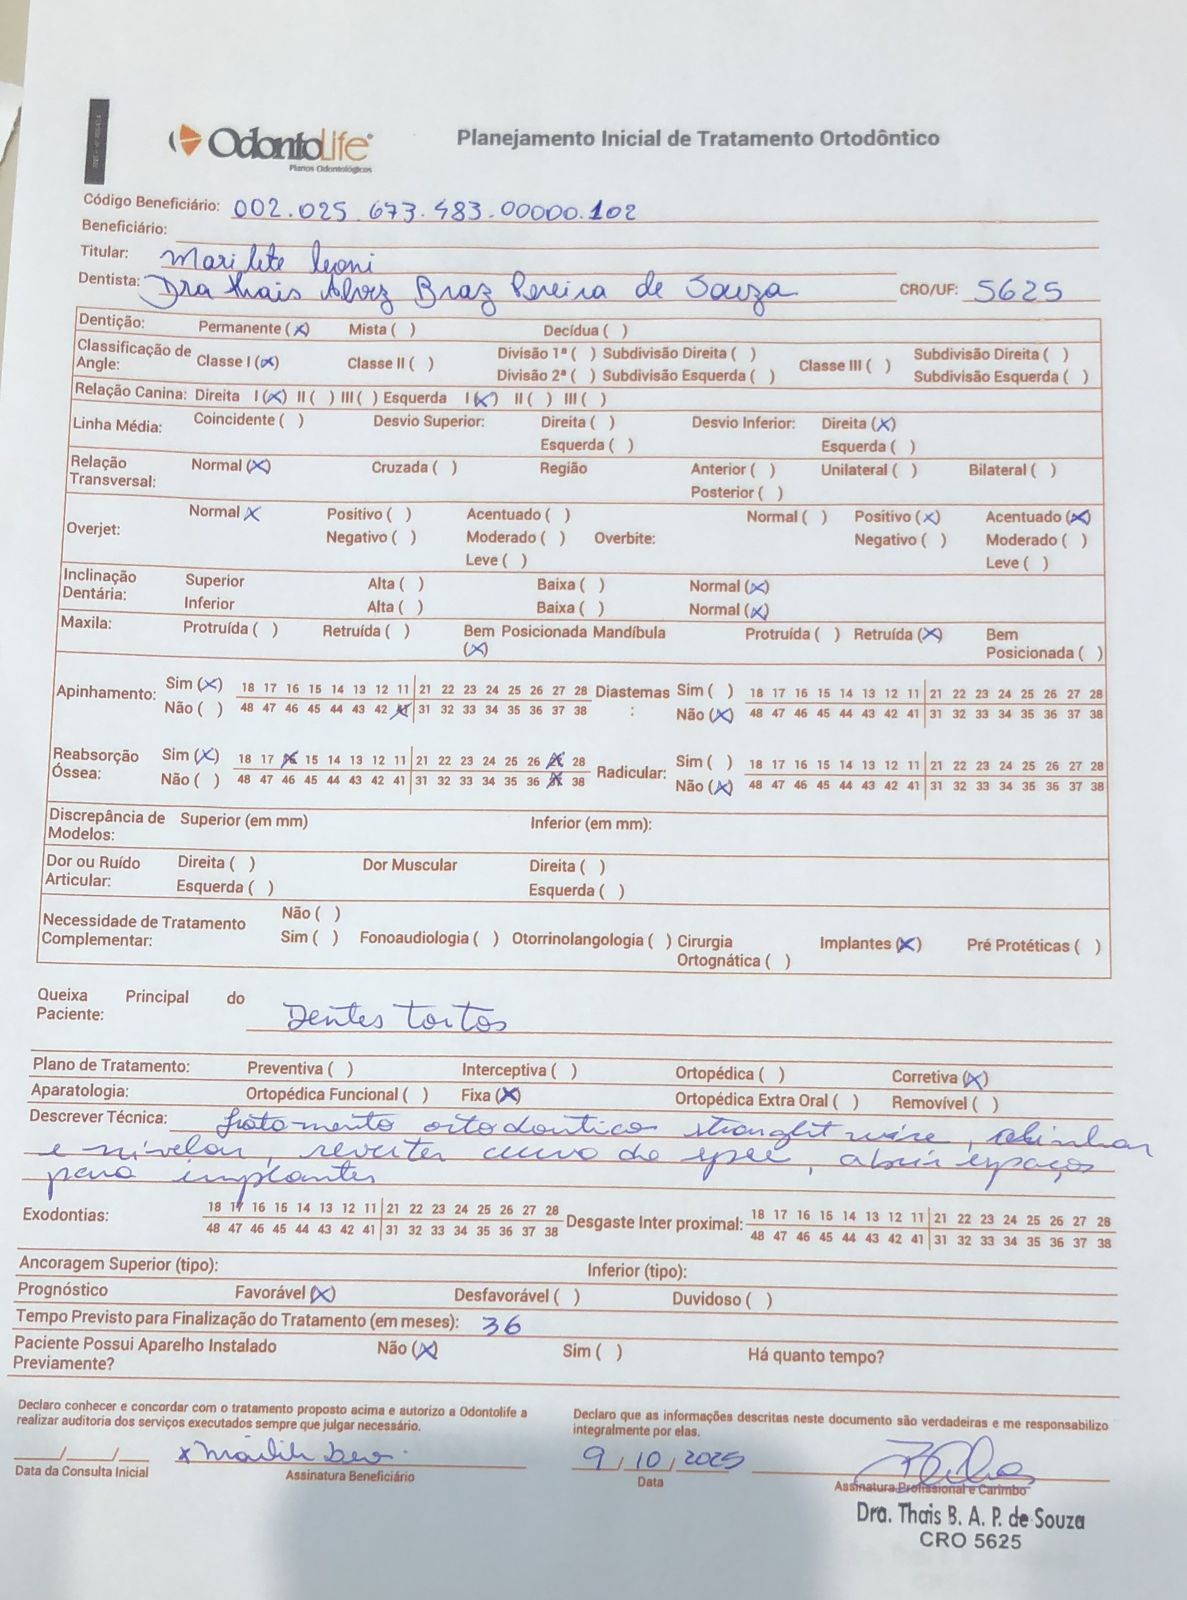 OdontoLife
Planos Odontológicos
Planejamento Inicial de Tratamento Ortodôntico
Código Beneficiário: 002.025.673.483.00000.102
Beneficiário:
Titular: Marilete Leoni
Dentista: Dra Thais Alvez Braz Pereira de Souza CRO/UF: 5625
Dentição: Permanente (x) Mista ( ) Decídua ( )
Classificação de Angle: Classe I (x) Classe II ( ) Divisão 1ª ( ) Subdivisão Direita ( ) Classe III ( ) Subdivisão Direita ( )
Divisão 2ª ( ) Subdivisão Esquerda ( ) Subdivisão Esquerda ( )
Relação Canina: Direita I (x) II ( ) III ( ) Esquerda I (x) II ( ) III ( )
Linha Média: Coincidente ( ) Desvio Superior: Direita ( ) Desvio Inferior: Direita (x)
Esquerda ( ) Esquerda ( )
Relação Transversal: Normal (x) Cruzada ( ) Região Anterior ( ) Unilateral ( ) Bilateral ( )
Posterior ( )
Overjet: Normal x Positivo ( ) Acentuado ( ) Overbite: Normal ( ) Positivo (x) Acentuado (x)
Negativo ( ) Moderado ( ) Negativo ( ) Moderado ( )
Leve ( ) Leve ( )
Inclinação Dentária: Superior Alta ( ) Baixa ( ) Normal (x)
Inferior Alta ( ) Baixa ( ) Normal (x)
Maxila: Protruída ( ) Retruída ( ) Bem Posicionada (x) Mandíbula Protruída ( ) Retruída (x) Bem Posicionada ( )
Apinhamento: Sim (x) 18 17 16 15 14 13 12 11 21 22 23 24 25 26 27 28 Diastemas: Sim ( ) 18 17 16 15 14 13 12 11 21 22 23 24 25 26 27 28
Não ( ) 48 47 46 45 44 43 42 41 31 32 33 34 35 36 37 38 Não (x) 48 47 46 45 44 43 42 41 31 32 33 34 35 36 37 38
Reabsorção Óssea: Sim (x) 18 17 16 15 14 13 12 11 21 22 23 24 25 26 27 28 Radicular: Sim ( ) 18 17 16 15 14 13 12 11 21 22 23 24 25 26 27 28
Não ( ) 48 47 46 45 44 43 42 41 31 32 33 34 35 36 37 38 Não (x) 48 47 46 45 44 43 42 41 31 32 33 34 35 36 37 38
Discrepância de Modelos: Superior (em mm) Inferior (em mm):
Dor ou Ruído Articular: Direita ( ) Dor Muscular Direita ( )
Esquerda ( ) Esquerda ( )
Necessidade de Tratamento Complementar: Não ( )
Sim ( ) Fonoaudiologia ( ) Otorrinolangologia ( ) Cirurgia Ortognática ( ) Implantes (x) Pré Protéticas ( )
Queixa Principal do Paciente: Dentes tortos
Plano de Tratamento: Preventiva ( ) Interceptiva ( ) Ortopédica ( ) Corretiva (x)
Aparatologia: Ortopédica Funcional ( ) Fixa (x) Ortopédica Extra Oral ( ) Removível ( )
Descrever Técnica: tratamento ortodontico straight wire, alinhar
e nivelar, reverter curva de spee, abrir espaços
para implantes
Exodontias: 18 17 16 15 14 13 12 11 21 22 23 24 25 26 27 28 Desgaste Inter proximal: 18 17 16 15 14 13 12 11 21 22 23 24 25 26 27 28
48 47 46 45 44 43 42 41 31 32 33 34 35 36 37 38 48 47 46 45 44 43 42 41 31 32 33 34 35 36 37 38
Ancoragem Superior (tipo): Inferior (tipo):
Prognóstico Favorável (x) Desfavorável ( ) Duvidoso ( )
Tempo Previsto para Finalização do Tratamento (em meses): 36
Paciente Possui Aparelho Instalado Previamente? Não (x) Sim ( ) Há quanto tempo?
Declaro conhecer e concordar com o tratamento proposto acima e autorizo a Odontolife a
realizar auditoria dos serviços executados sempre que julgar necessário.
Declaro que as informações descritas neste documento são verdadeiras e me responsabilizo
integralmente por elas.
___/___/___ x 9/10/2025
Data da Consulta Inicial Assinatura Beneficiário Data Assinatura Profissional e Carimbo
Dra. Thais B. A. P. de Souza
CRO 5625